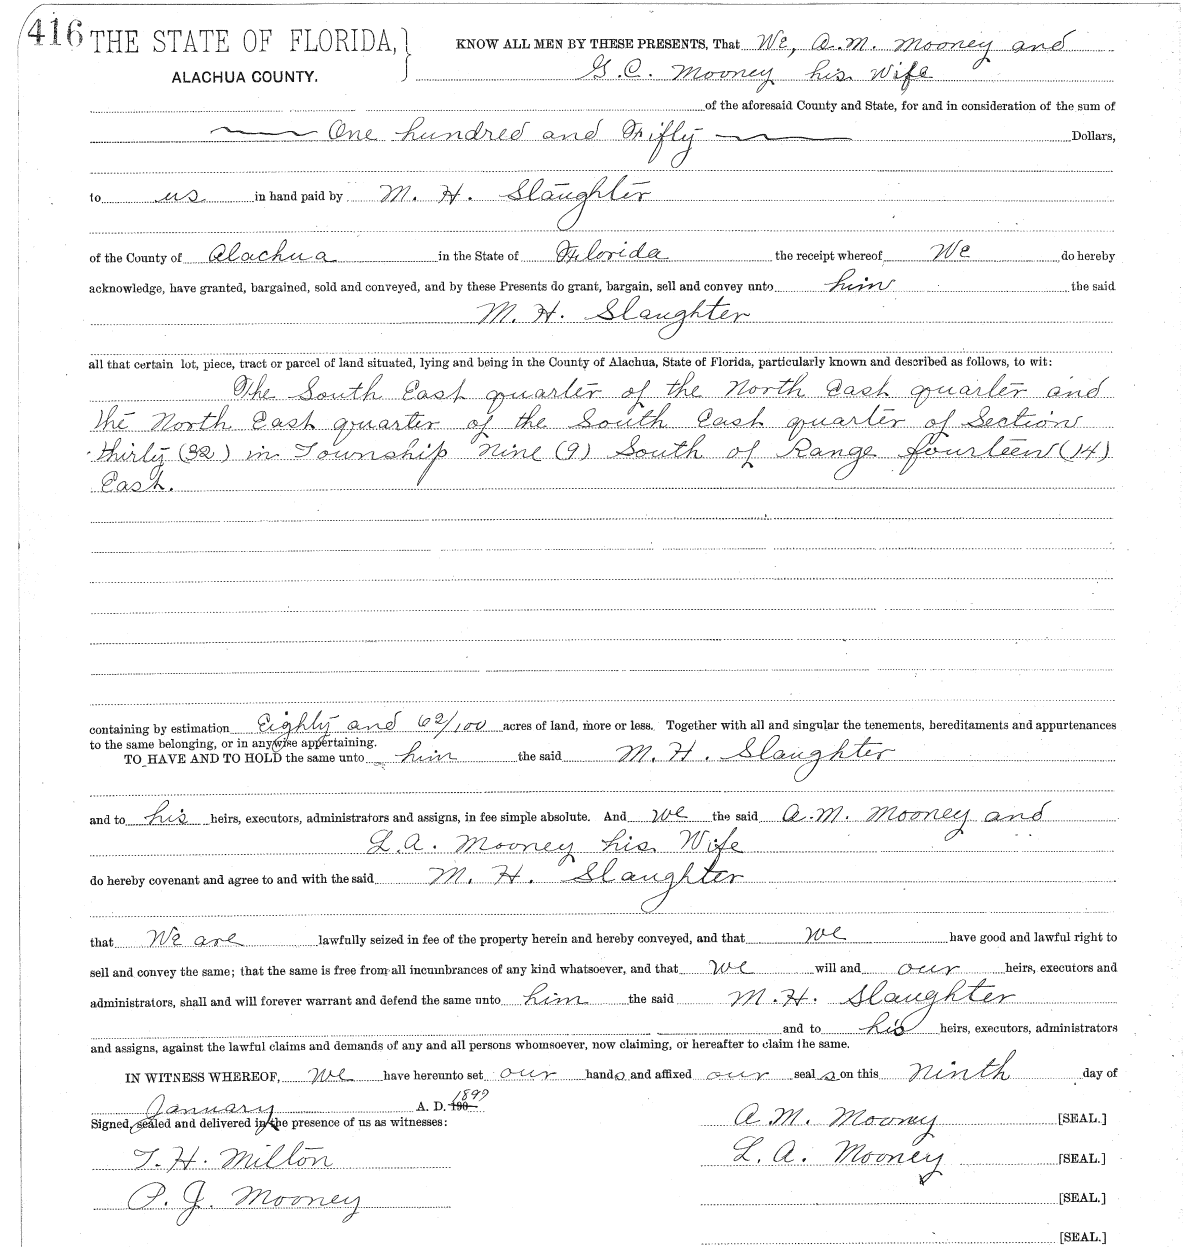 416 THE STATE OF FLORIDA,} KNOW ALL MEN BY THESE PRESENTS, That We, A. M. Mooney and
ALACHUA COUNTY. G. C. Mooney his Wife
of the aforesaid County and State, for and in consideration of the sum of
One hundred and Fifty Dollars,
to us in hand paid by M. H. Slaughter
of the County of Alachua in the State of Florida the receipt whereof We do hereby
acknowledge, have granted, bargained, sold and conveyed, and by these Presents do grant, bargain, sell and convey unto him the said
M. H. Slaughter
all that certain lot, piece, tract or parcel of land situated, lying and being in the County of Alachua, State of Florida, particularly known and described as follows, to wit:
The South East quarter of the North East quarter and
the North East quarter of the South East quarter of Section
thirty (32) in Township Nine (9) South of Range fourteen (14)
East.
containing by estimation Eighty and 62/100 acres of land, more or less. Together with all and singular the tenements, hereditaments and appurtenances
to the same belonging, or in anywise appertaining.
TO HAVE AND TO HOLD the same unto him the said M. H. Slaughter
and to his heirs, executors, administrators and assigns, in fee simple absolute. And we the said A. M. Mooney and
L. A. Mooney his Wife
do hereby covenant and agree to and with the said M. H. Slaughter
that We are lawfully seized in fee of the property herein and hereby conveyed, and that we have good and lawful right to
sell and convey the same; that the same is free from all incumbrances of any kind whatsoever, and that we will and our heirs, executors and
administrators, shall and will forever warrant and defend the same unto him the said M. H. Slaughter
and to his heirs, executors, administrators
and assigns, against the lawful claims and demands of any and all persons whomsoever, now claiming, or hereafter to claim the same.
IN WITNESS WHEREOF, We have hereunto set our hands and affixed our seals on this ninth day of
January A. D. 190 1899
Signed, sealed and delivered in the presence of us as witnesses: A. M. Mooney [SEAL.]
T. H. Milton L. A. Mooney [SEAL.]
P. J. Mooney [SEAL.]
[SEAL.]